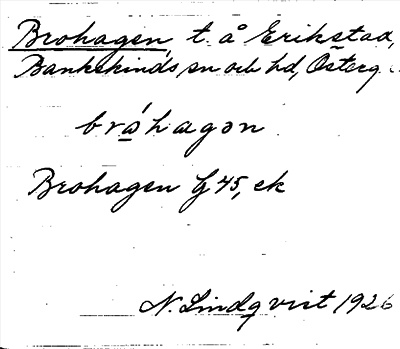 Brohagen, t. å Erikstad,
Bankekinds sn och hd, Österg.
bråhagən
Brohagen G 45, ek
N. Lindqvist 1926